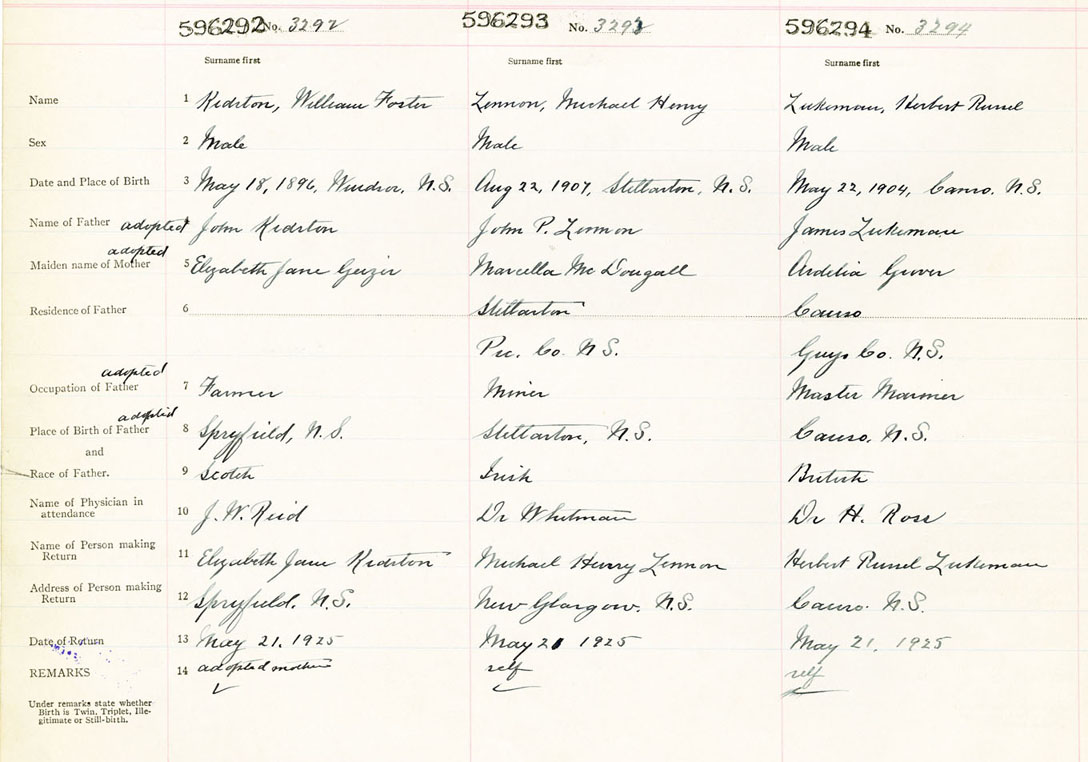 596292 No. 3292 596293 No. 3293 596294 No. 3294
Surname first Surname first Surname first
Name 1 Kidston, William Foster Lennon, Michael Henry Lukeman, Herbert Russel
Sex 2 Male Male Male
Date and Place of Birth 3 May 18, 1896, Windsor, N.S. Aug 22, 1907, Stellarton, N.S. May 22, 1904, Canso. N.S.
Name of Father adopted John Kidston John P. Lennon James Lukeman
adopted
Maiden name of Mother 5 Elizabeth Jane Geizer Marcella McDougall Ardelia Grover
Residence of Father 6 Stellarton Canso
Pic. Co. N.S. Guys Co. N.S.
adopted
Occupation of Father 7 Farmer Miner Master Mariner
adopted
Place of Birth of Father 8 Spryfield, N.S. Stellarton, N.S. Canso, N.S.
and
Race of Father. 9 Scotch Irish British
Name of Physician in
attendance 10 J. W. Reid Dr Whitman Dr H. Ross
Name of Person making
Return 11 Elizabeth Jane Kidston Michael Henry Lennon Herbert Russel Lukeman
Address of Person making
Return 12 Spryfield. N.S. New Glasgow. N.S. Canso. N.S.
Date of Return 13 May 21, 1925 May 21 1925 May 21, 1925
REMARKS 14 adopted mother self self
Under remarks state whether
Birth is Twin, Triplet, Ille-
gitimate or Still-birth.